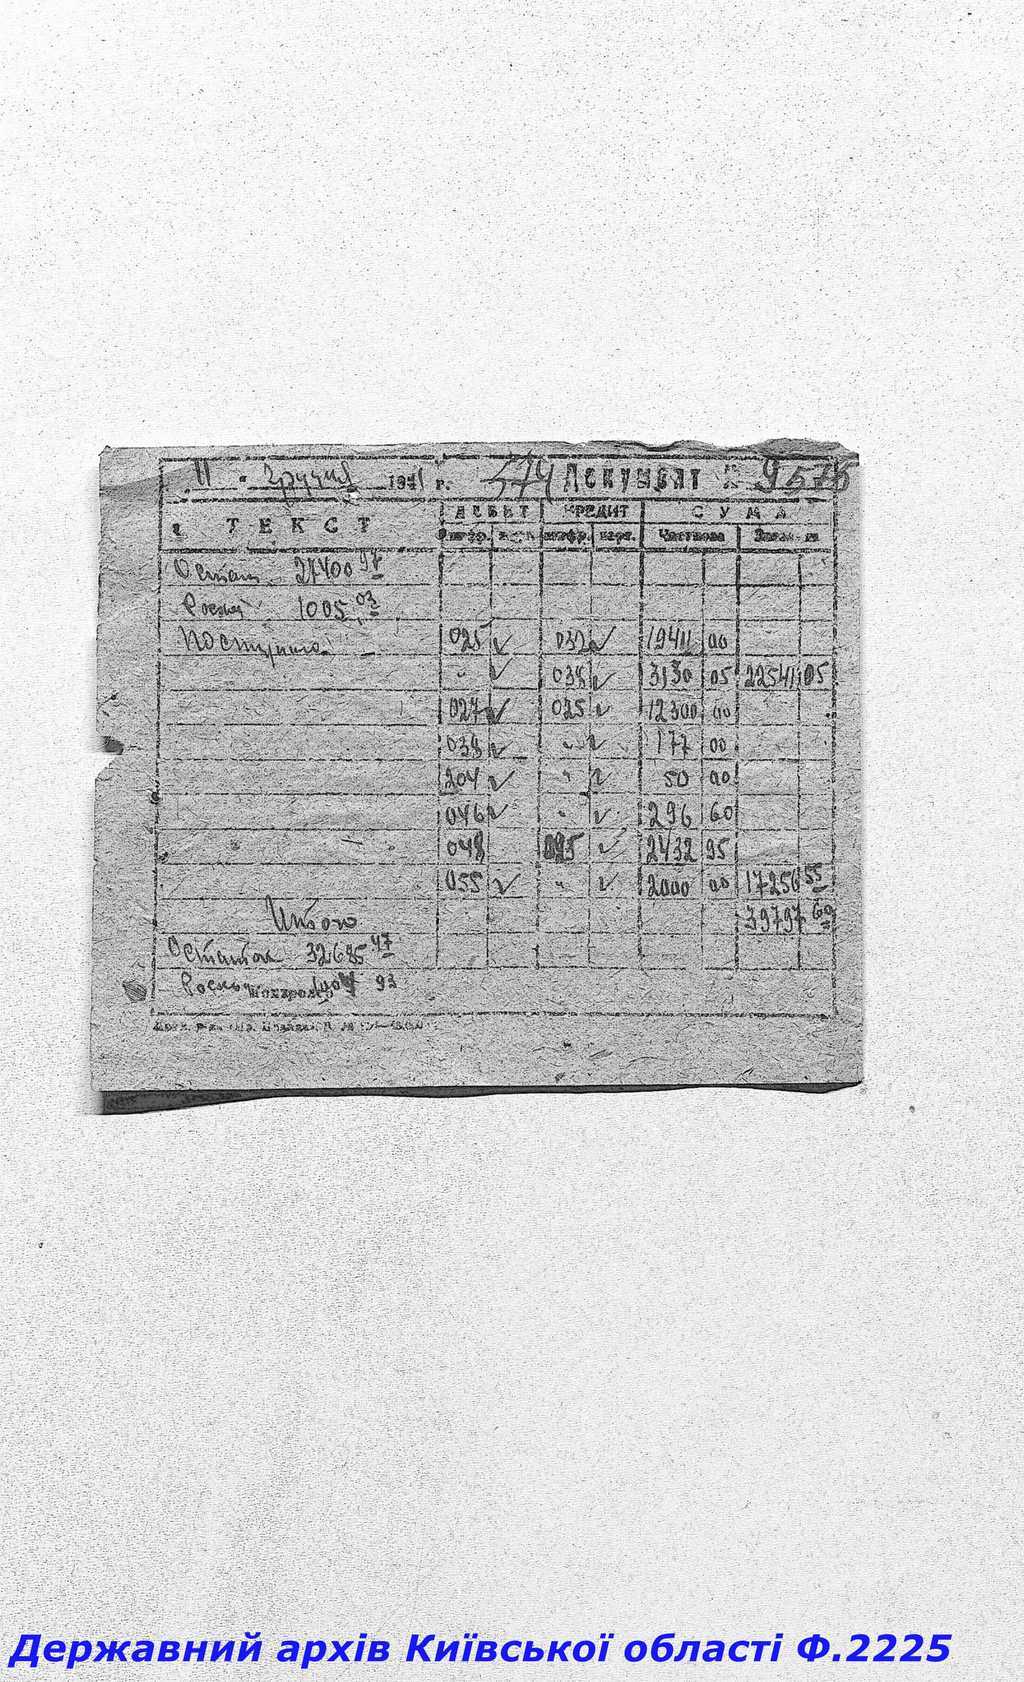 11 Грудня 1941 р. 574 Документ № 9578
ДЕБЕТ КРЕДИТ СУМА
ТЕКСТ шифр. карт. шифр. карт. Часткова
Остат. 27400 97
1005,03
Поступило 025 032 19411 00
" 038 3130 05 22541,05
027 025 12300 00
038 " 177 00
204 " 50 00
046 " 296 60
048 025 2432 95
055 " 2000 00 17256 55
Итого 39797 60
Остаток 32685 47
93
Державний архів Київської області Ф.2225